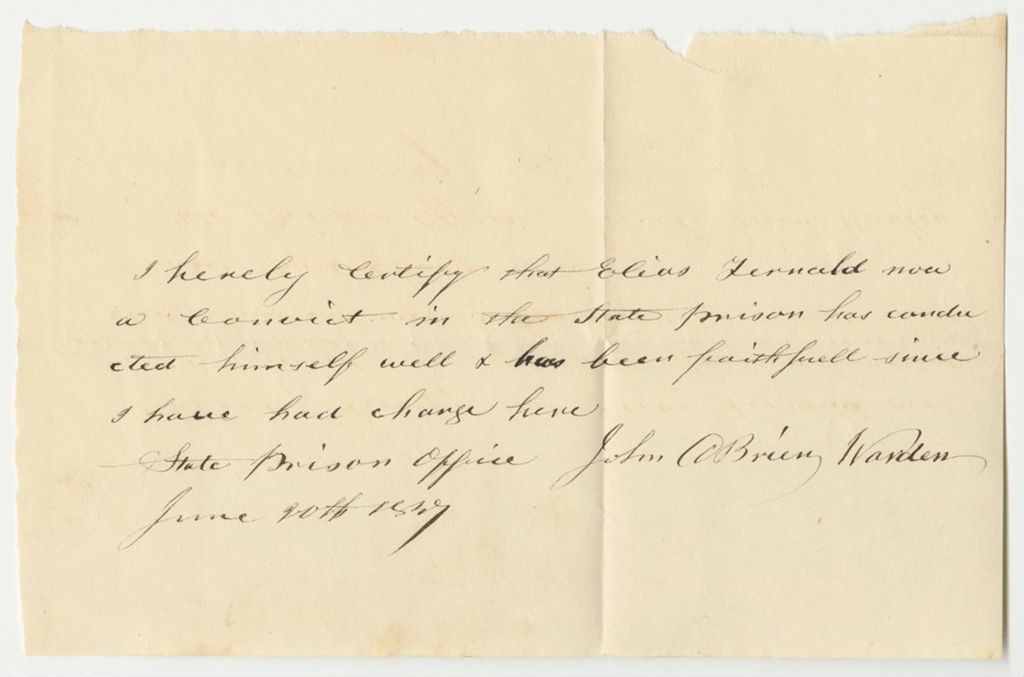 I hereby Certify that Elias Fernald now
a Convict in the State prison has condu
cted himself well & has been faithfull since
I have had charge here
State Prison Office John OBrien Warden
June 20th 1847